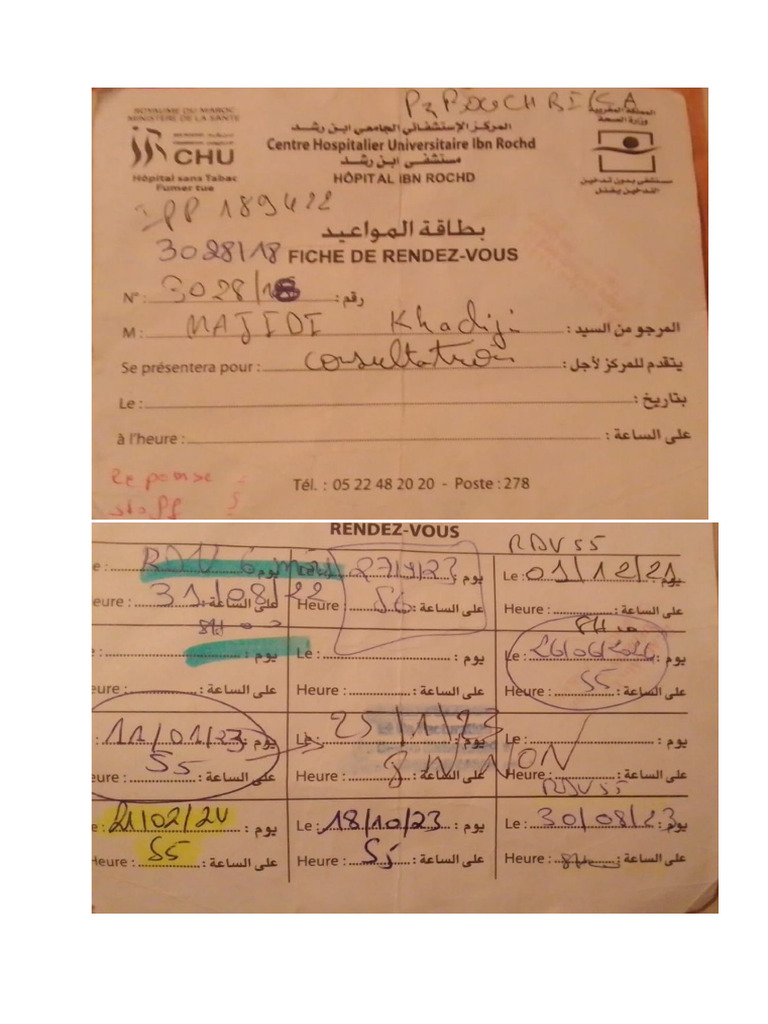 Pr BOUCHBIKA
ROYAUME DU MAROC
MINISTERE DE LA SANTE
المملكة المغربية
وزارة الصحة
CHU
Hôpital sans Tabac
Fumer tue
المركز الإستشفائي الجامعي ابن رشد
Centre Hospitalier Universitaire Ibn Rochd
مستشفى ابن رشد
HÔPITAL IBN ROCHD
مستشفى بدون تدخين
التدخين يقتل
IPP 189422
بطاقة المواعيد
3028/18 FICHE DE RENDEZ-VOUS
N° : 3028/18 رقم :
M : MAJIDI Khadija المرجو من السيد :
Se présentera pour : consultation يتقدم للمركز لأجل :
Le : بتاريخ :
à l'heure : على الساعة :
Reponse
staff
Tél. : 05 22 48 20 20 - Poste : 278
RENDEZ-VOUS
RDV S5
e : RDV 6 mois يوم :
27/9/23 يوم :
Le : 01/12/21 يوم :
eure : 31/08/22 على الساعة :
Heure : S6 على الساعة :
Heure : على الساعة :
8H
8H
: يوم :
Le : يوم :
Le : 26/06/2024 يوم :
eure : على الساعة :
Heure : على الساعة :
Heure : S5 على الساعة :
11/01/23 يوم :
Le : 25/1/23 يوم :
Le : يوم :
eure : S5 على الساعة :
Heure : على الساعة :
Heure : على الساعة :
RDV S5
e : 21/02/24 يوم :
Le : 18/10/23 يوم :
Le : 30/08/23 يوم :
Heure : S5 على الساعة :
Heure : S5 على الساعة :
Heure : 8H على الساعة :